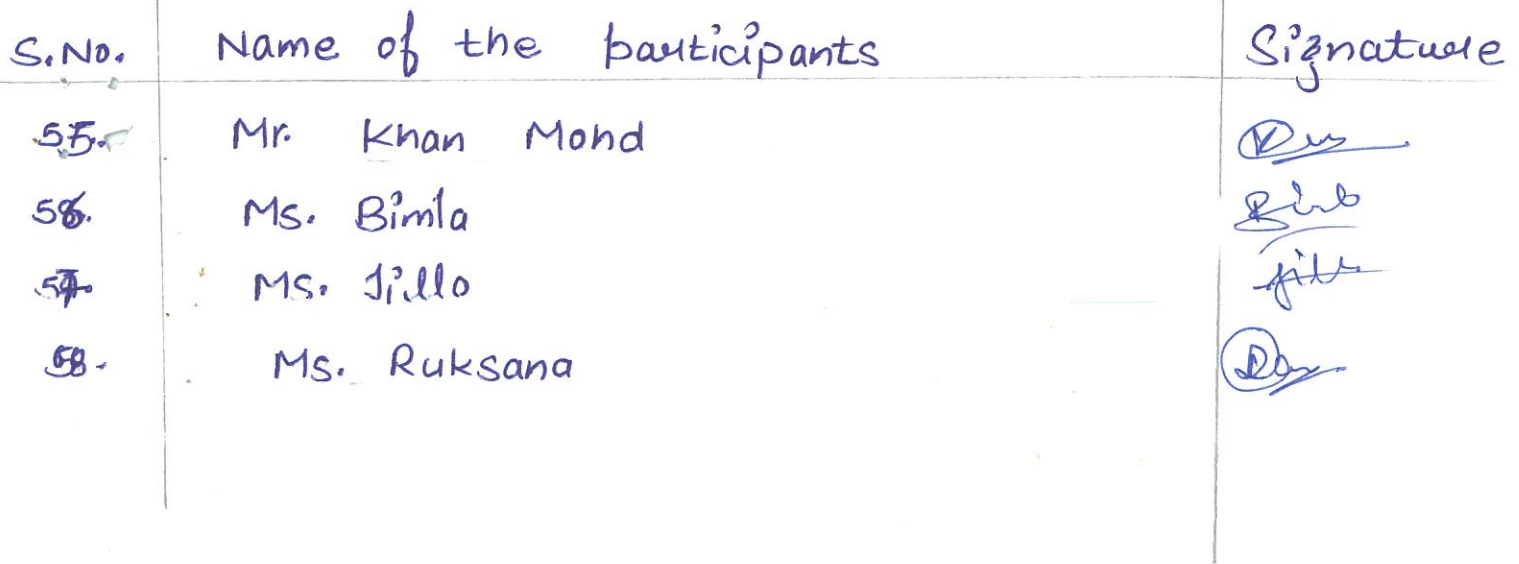 S.No. Name of the participants Signature
55. Mr. Khan Mohd
56. Ms. Bimla
57. Ms. Jillo
58. Ms. Ruksana